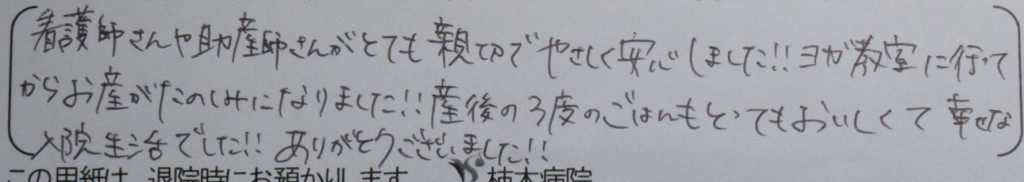 看護師さんや助産師さんがとても親切でやさしく安心しました!!ヨガ教室に行って
からお産がたのしみになりました!!産後の3度のごはんもとってもおいしくて幸せな
入院生活でした!!ありがとうございました!!
この用紙は、退院時にお預かりします 柿木病院